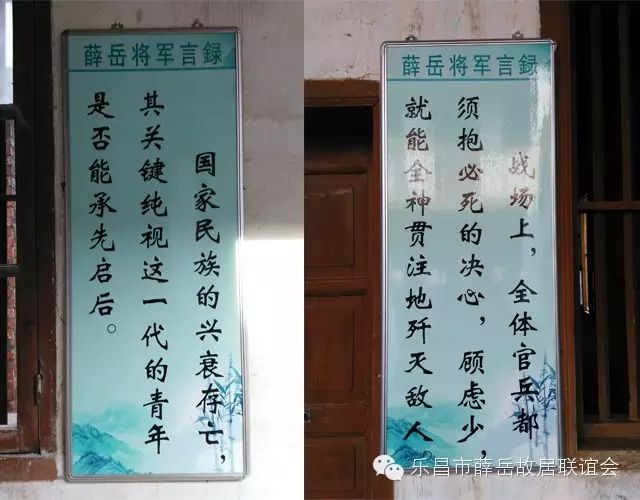 薛岳将军言録
国家民族的兴衰存亡，
其关键纯视这一代的青年
是否能承先启后。
薛岳将军言録
战场上，全体官兵都
须抱必死的决心，顾虑少，
就能全神贯注地歼灭敌人。
乐昌市薛岳故居联谊会